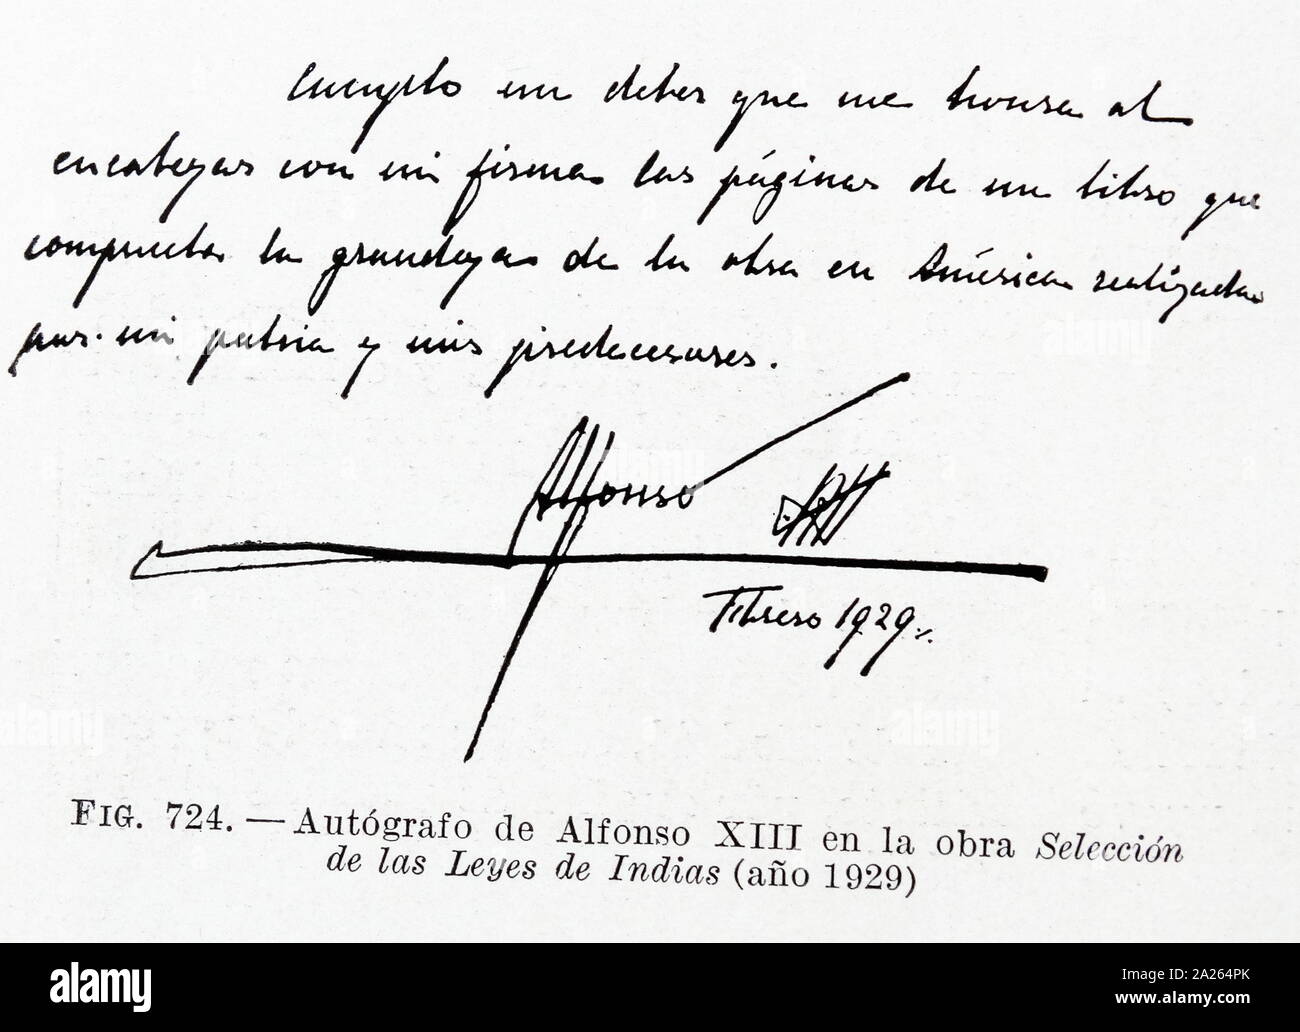 Cumplo un deber que me honra al
encabezar con mi firma las páginas de un libro que
comprueba la grandeza de la obra en América realizada
por mi patria y mis predecesores.
Alfonso
XIII
Febrero 1929
FIG. 724. — Autógrafo de Alfonso XIII en la obra Selección
de las Leyes de Indias (año 1929)
alamy
Image ID: 2A264PK
www.alamy.com